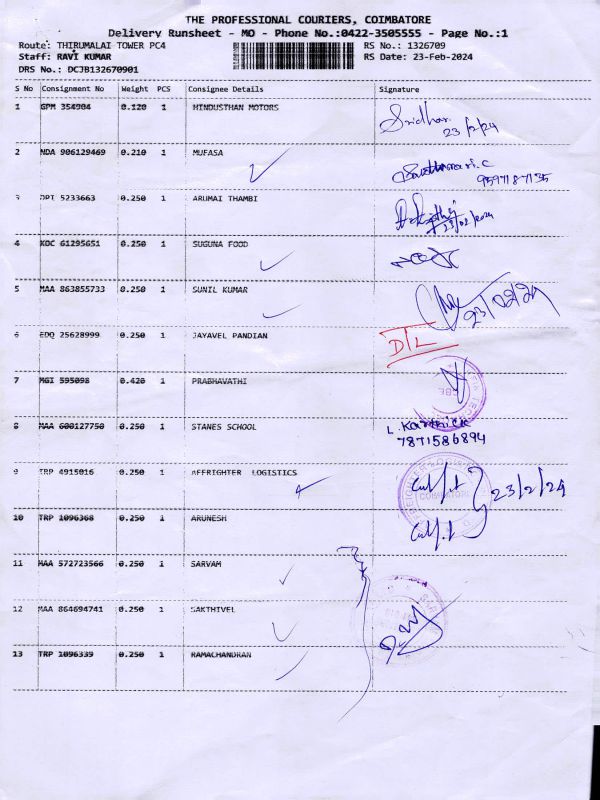 THE PROFESSIONAL COURIERS, COIMBATORE
Delivery Runsheet - MO - Phone No.:0422-3505555 - Page No.:1
Route: THIRUMALAI TOWER PC4 RS No.: 1326709
Staff: RAVI KUMAR RS Date: 23-Feb-2024
DRS No.: DCJB132670901
S No Consignment No Weight PCS Consignee Details Signature
1 GPM 354904 0.120 1 HINDUSTHAN MOTORS Sridhar
23/2/24
2 NDA 906129469 0.210 1 MUFASA
9597187135
3 DPI 5233663 0.250 1 ARUMAI THAMBI
23/02/2024
4 KOC 61295651 0.250 1 SUGUNA FOOD
5 MAA 863855733 0.250 1 SUNIL KUMAR
23/02/24
6 EDQ 25628999 0.250 1 JAYAVEL PANDIAN DTL
7 MGI 595098 0.420 1 PRABHAVATHI
8 MAA 600127750 0.250 1 STANES SCHOOL L. Karthick
7871586894
9 TRP 4915016 0.250 1 AFFRIGHTER LOGISTICS 23/2/24
COIMBATORE
10 TRP 1096368 0.250 1 ARUNESH
11 MAA 572723566 0.250 1 SARVAM
12 MAA 864694741 0.250 1 SAKTHIVEL
13 TRP 1096339 0.250 1 RAMACHANDRAN